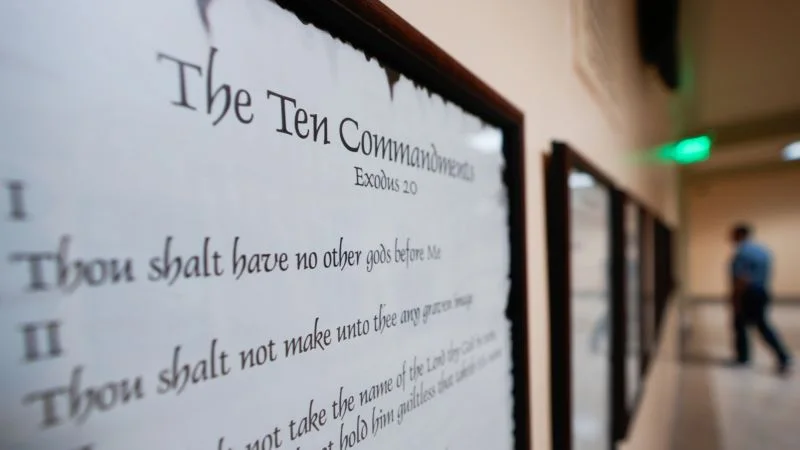 The Ten Commandments
Exodus 20
I
Thou shalt have no other gods before Me
II
Thou shalt not make unto thee any graven image
not take the name of the Lord thy God
not hold him guiltless that